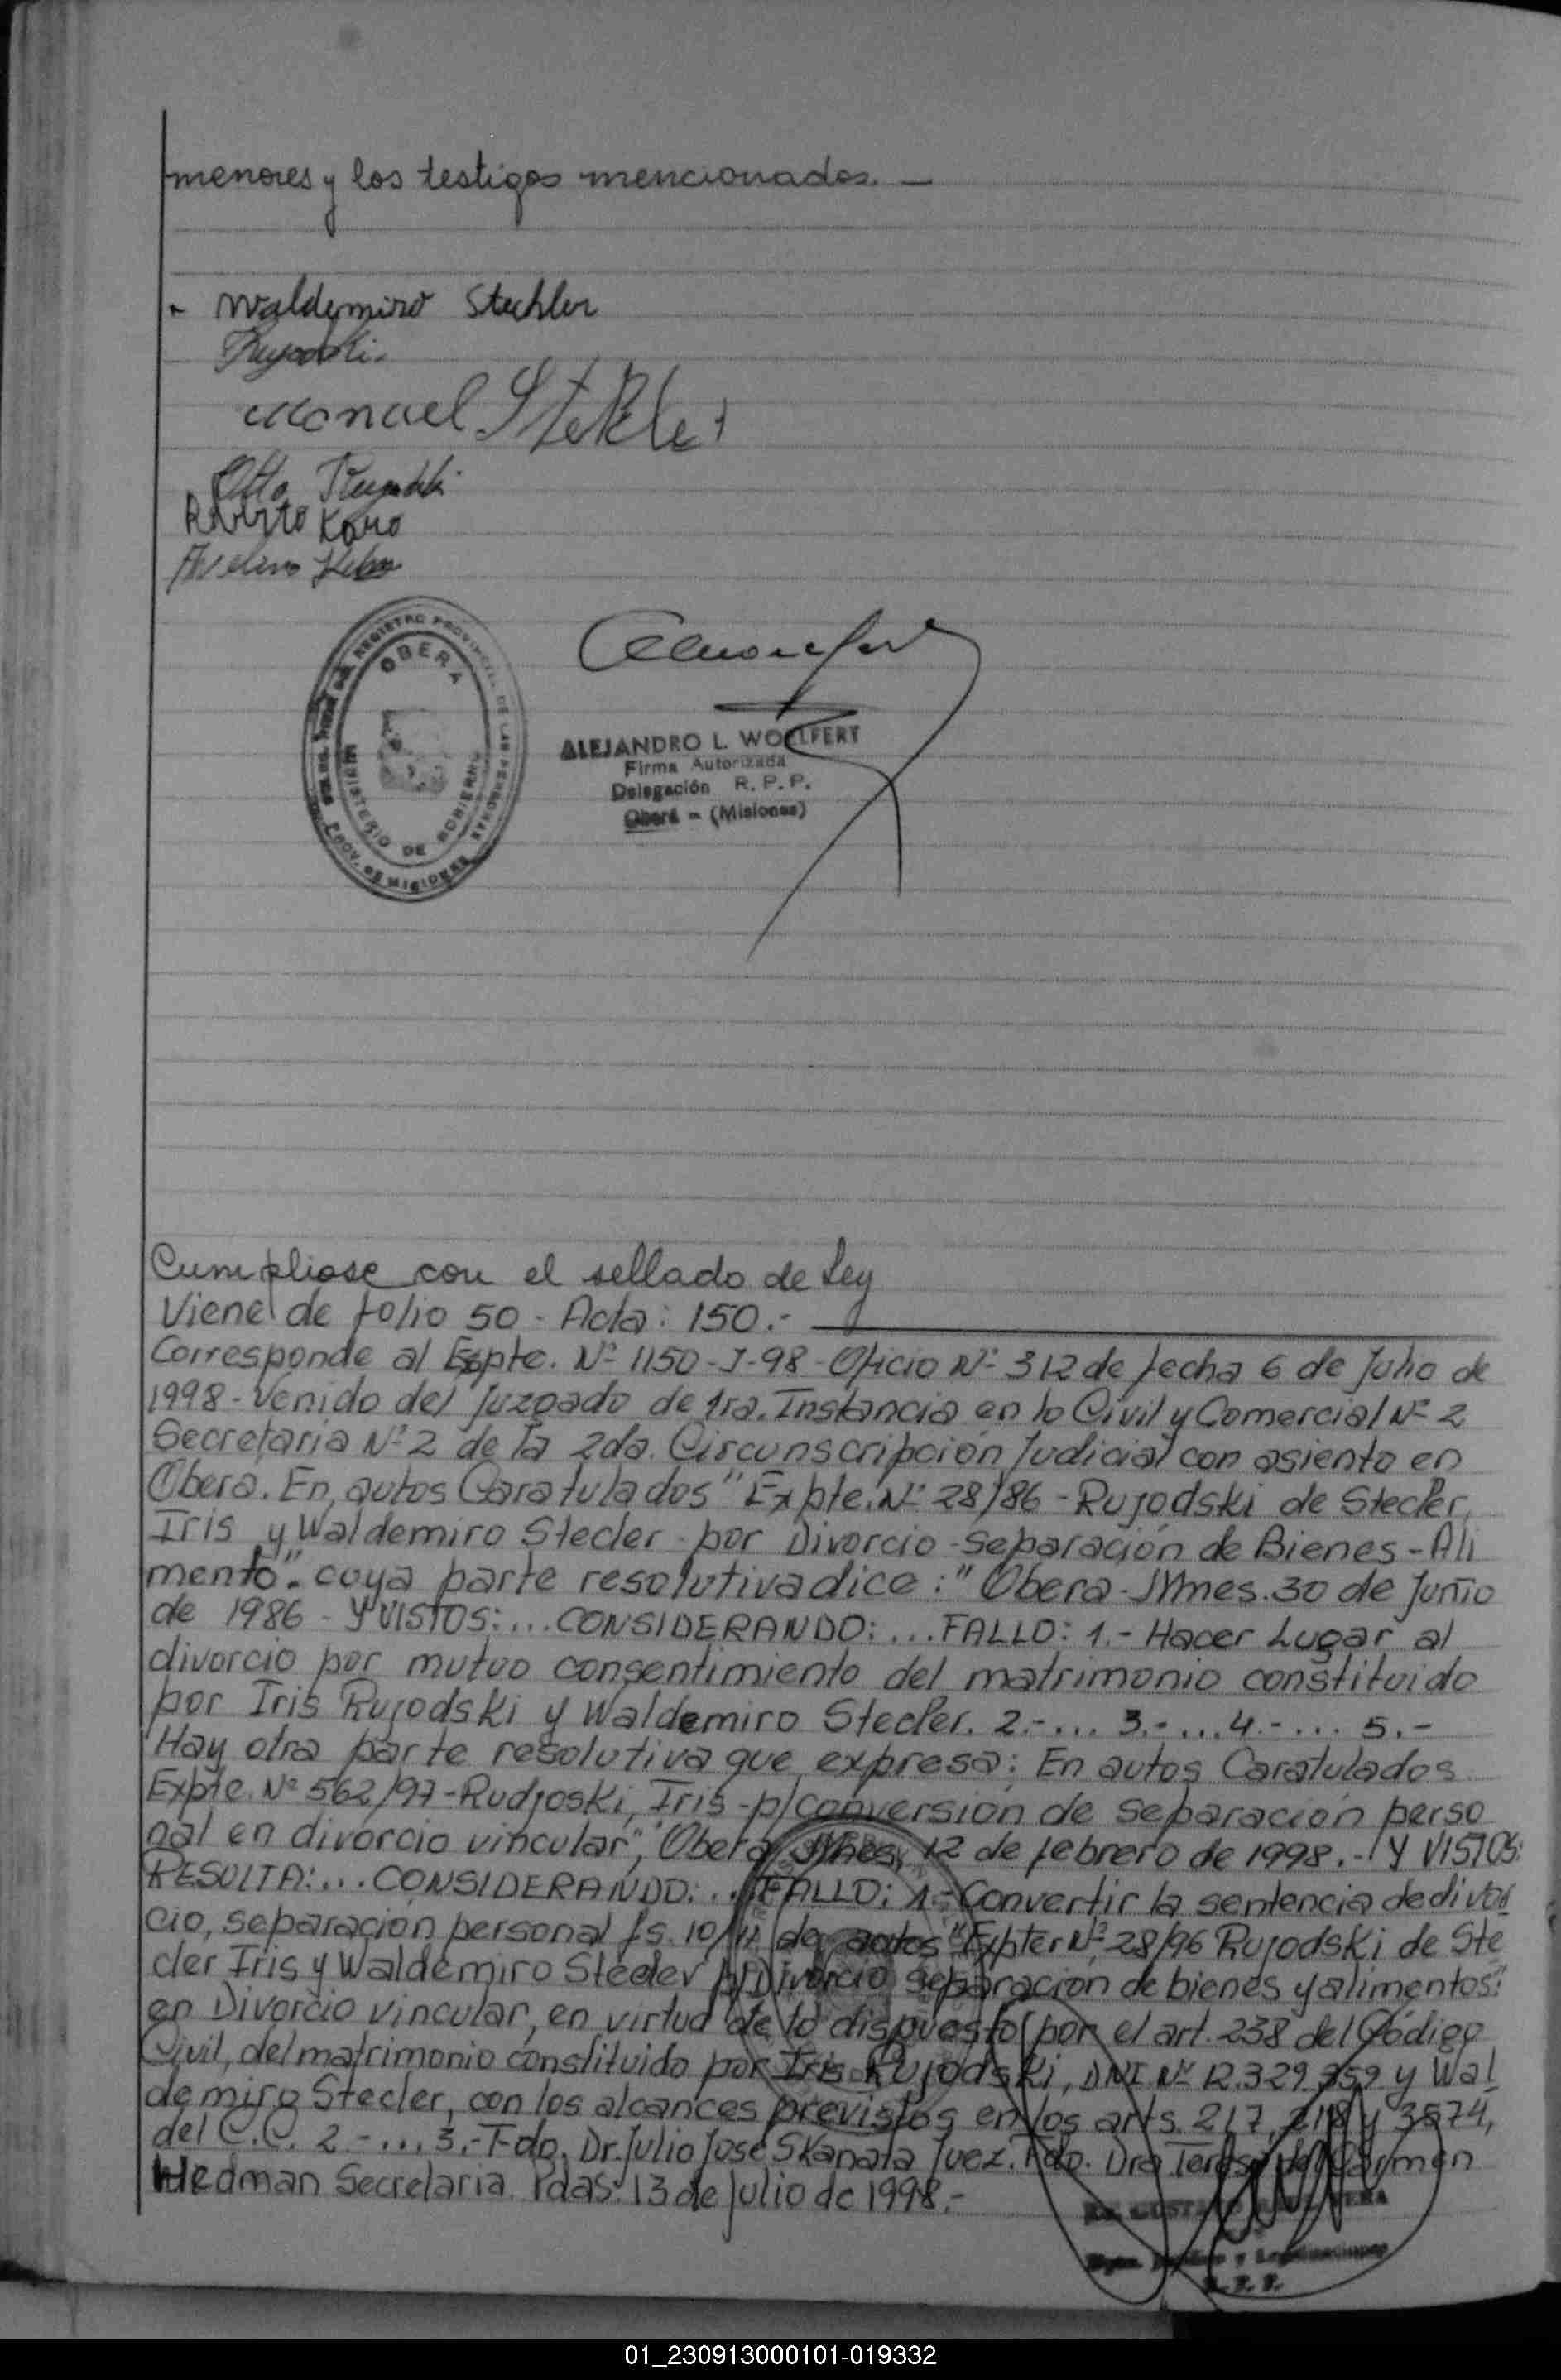 menores y los testigos mencionados. —
Waldemiro Stechler
Manuel Stekler
Otto
Roberto Karo
Avelino
REGISTRO PROVINCIAL DE LAS PERSONAS
OBERA
MINISTERIO DE GOBIERNO
PROV. DE MISIONES
ALEJANDRO L. WOLLFERT
Firma Autorizada
Delegación R. P. P.
Oberá - (Misiones)
Cumpliose con el sellado de Ley
Viene de folio 50 - Acta: 150.-
Corresponde al Expte. Nº 1150-J-98 - Oficio Nº 312 de fecha 6 de Julio de
1998 - Venido del Juzgado de 1ra. Instancia en lo Civil y Comercial Nº 2
Secretaria Nº 2 de la 2da. Circunscripción Judicial con asiento en
Obera. En autos Caratulados "Expte. Nº 28/86 - Rujodski de Stecler,
Iris y Waldemiro Stecler por Divorcio - Separación de Bienes - Ali
mento". cuya parte resolutiva dice: "Obera - Mnes. 30 de Junio
de 1986 - Y VISTOS:... CONSIDERANDO:... FALLO: 1.- Hacer Lugar al
divorcio por mutuo consentimiento del matrimonio constituido
por Iris Rujodski y Waldemiro Stecler. 2.-... 3.-... 4.-... 5.-
Hay otra parte resolutiva que expresa: En autos Caratulados
Expte. Nº 562/97 - Rudjoski, Iris - p/conversión de separación perso
nal en divorcio vincular", "Obera, Mnes, 12 de febrero de 1998.- Y VISTOS:
RESULTA:... CONSIDERANDO:... FALLO: 1.- Convertir la sentencia de divor
cio, separación personal fs. 10/11 de autos "Expte Nº 28/96 Rujodski de Ste
cler Iris y Waldemiro Stecler p/Divorcio separacion de bienes y alimentos."
en Divorcio vincular, en virtud de lo dispuesto por el art. 238 del Código
Civil, del matrimonio constituido por Iris Rujodski, DNI Nº 12.329.359 y Wal
demiro Stecler, con los alcances previstos en los arts. 217, 218 y 3574,
del C.C. 2.-... 3.- Fdo. Dr. Julio José Skanata Juez. Fdo. Dra Teresa del Carmen
Hedman Secretaria. Pdas. 13 de Julio de 1998.-
R. P. P.
01_230913000101-019332